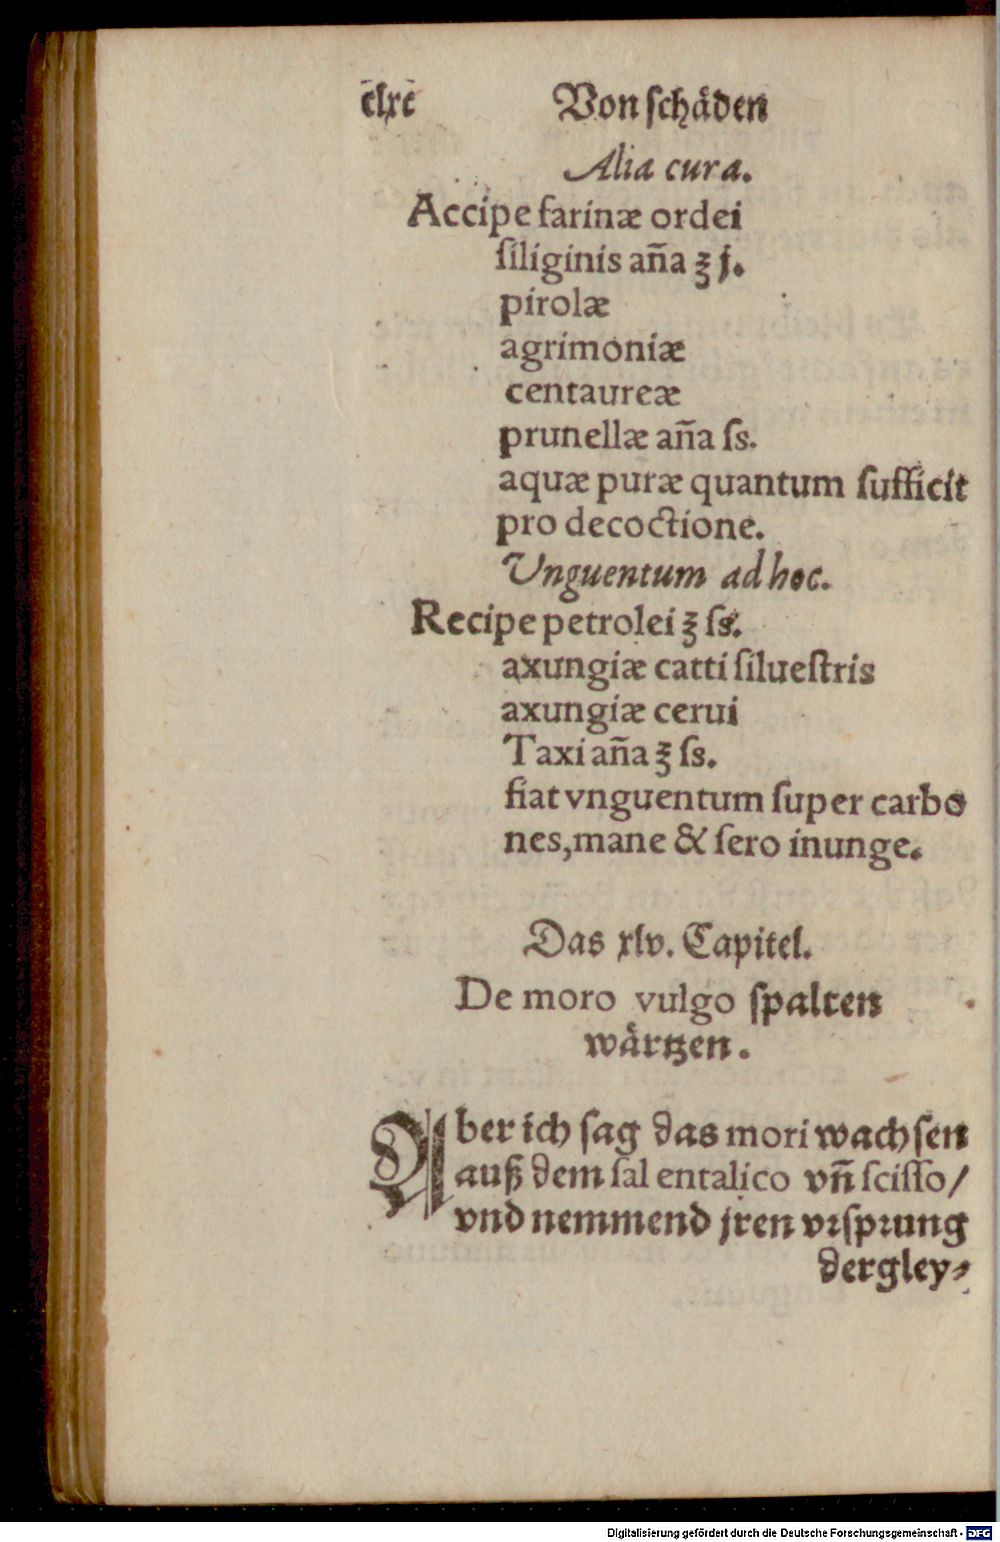 clxc Von schäden
Alia cura.
Accipe farinæ ordei
ſiliginis aña ʒ j.
pirolæ
agrimoniæ
centaureæ
prunellæ aña ſs.
aquæ puræ quantum ſufficit
pro decoctione.
Vnguentum ad hoc.
Recipe petrolei ʒ ſs.
axungiæ catti ſilueſtris
axungiæ cerui
Taxi aña ʒ ſs.
fiat vnguentum ſuper carbo
nes, mane & ſero inunge.
Das xlv. Capitel.
De moro vulgo ſpalten
wärtzen.
Aber ich ſag das mori wachſen
auß dem ſal entalico vn̄ ſciſſo/
vnd nemmend jren vrſprung
dergley⸗
Digitalisierung gefördert durch die Deutsche Forschungsgemeinschaft - DFG